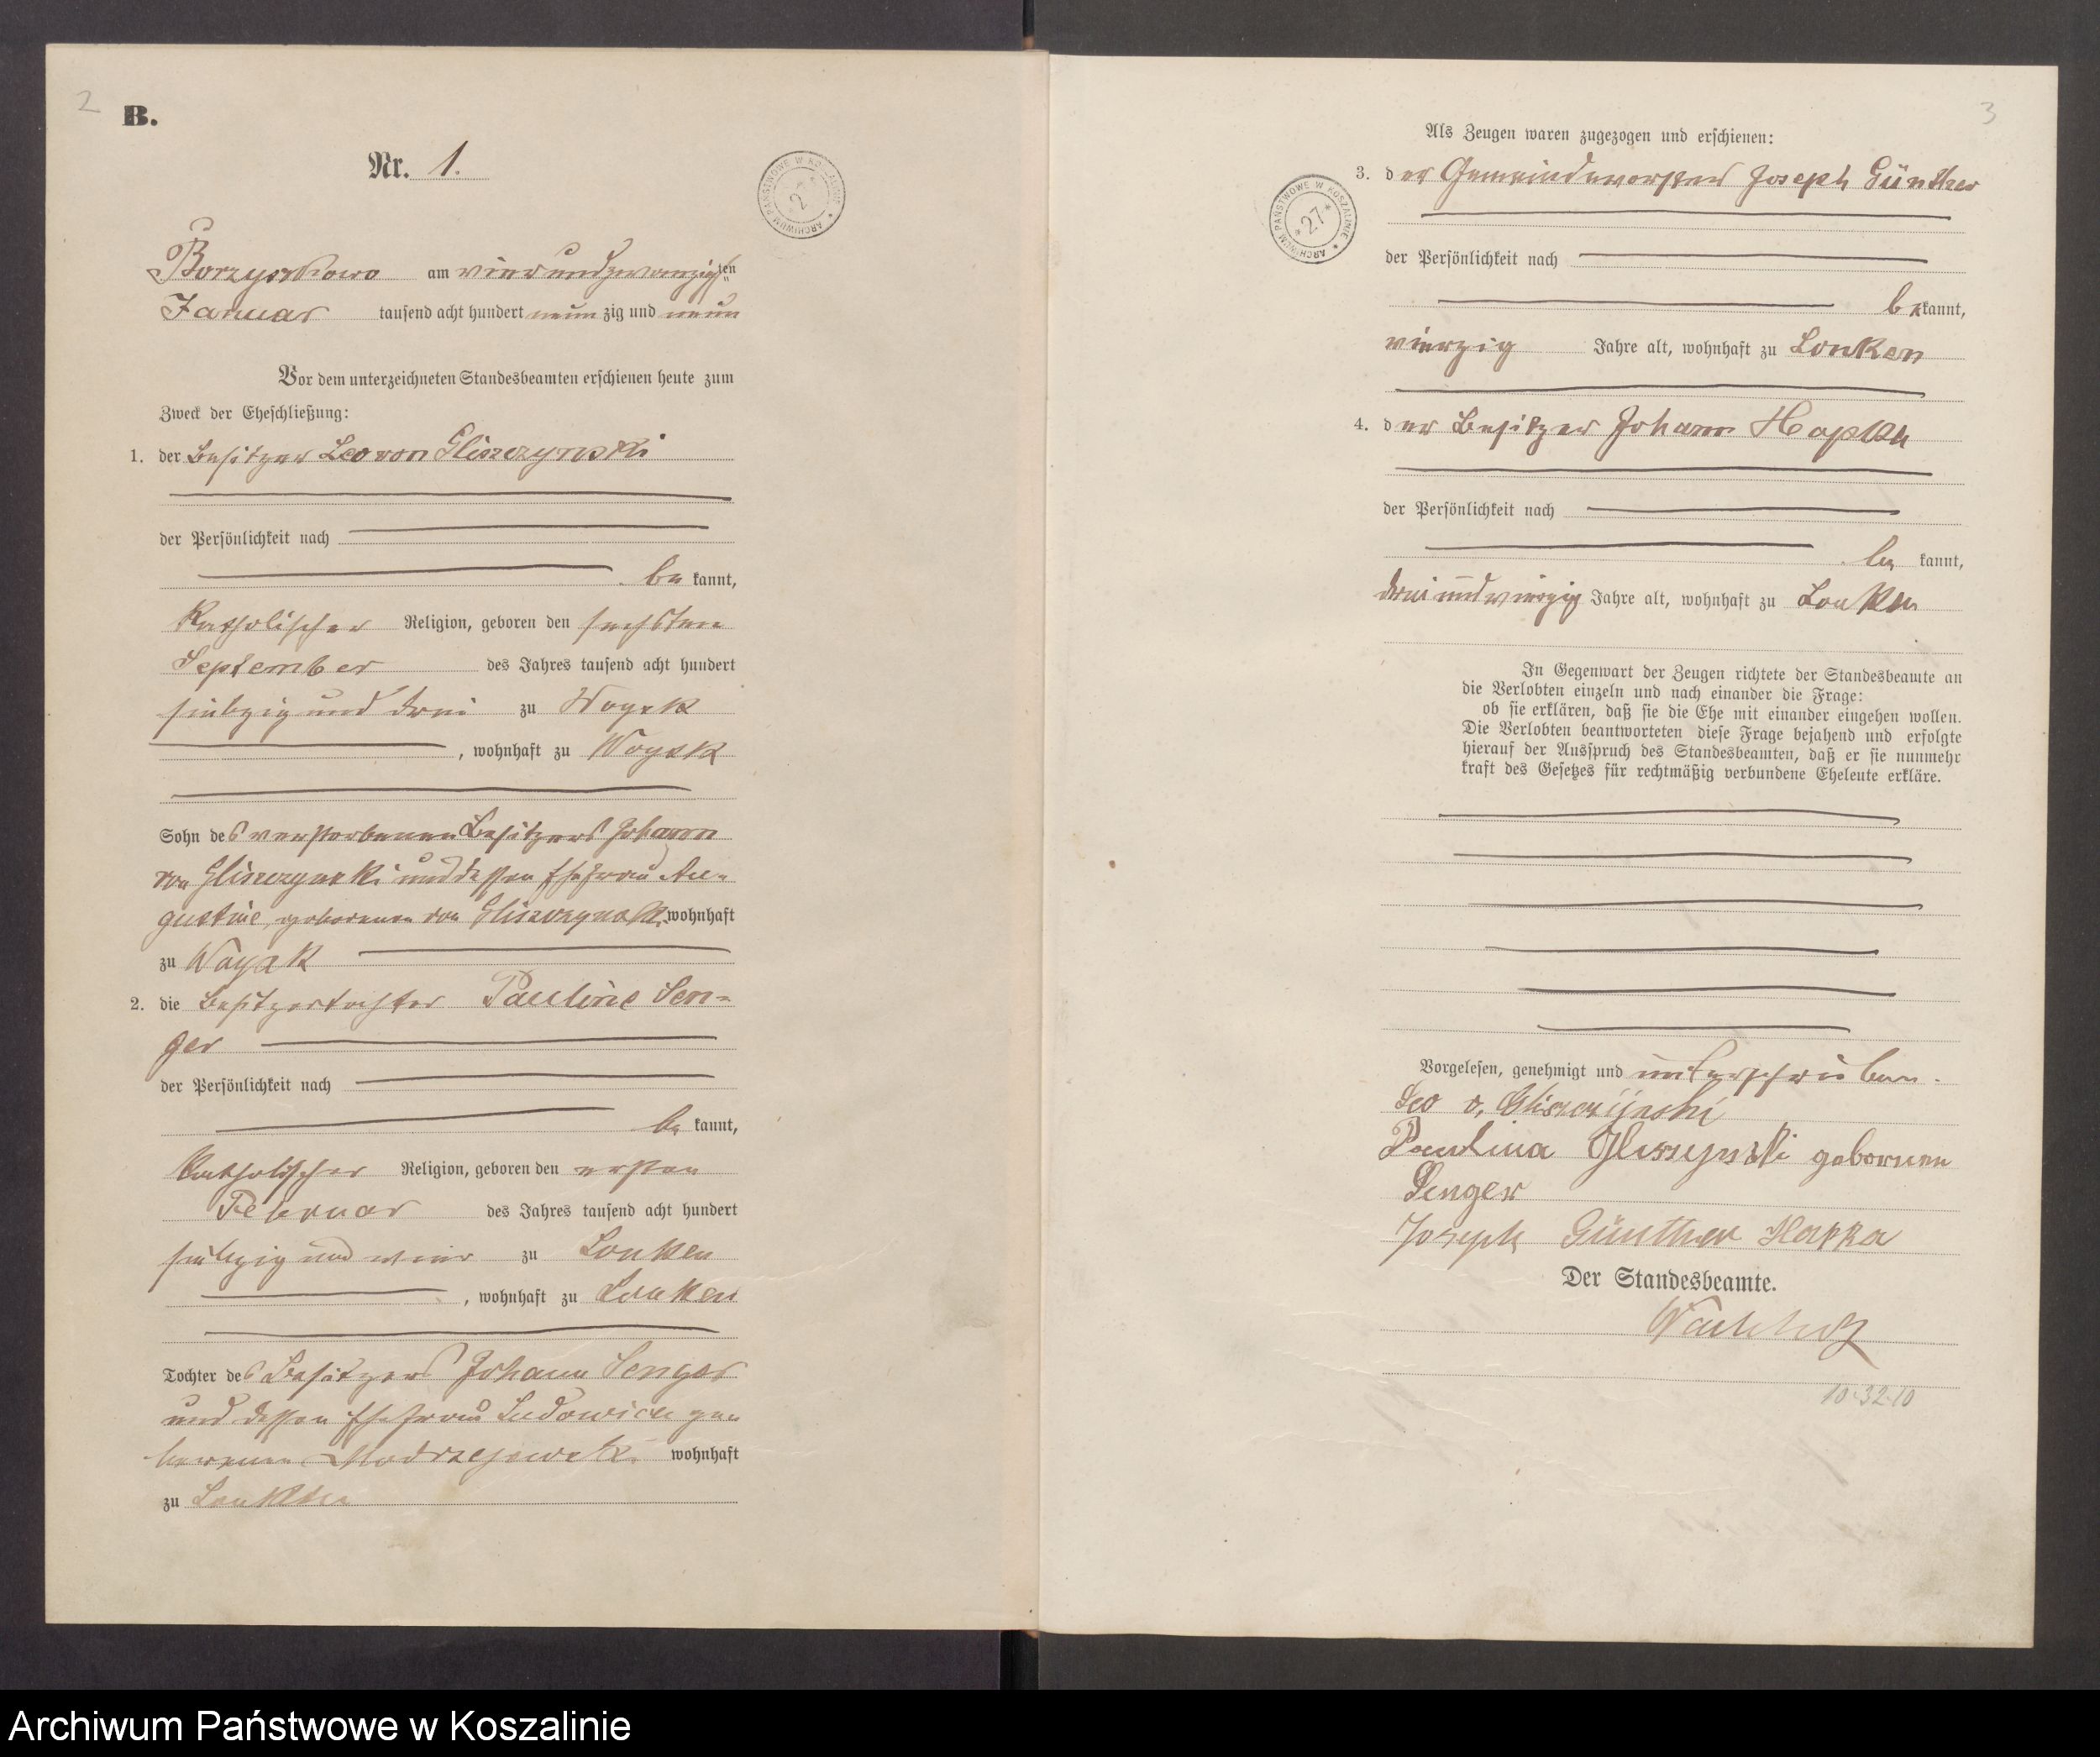 2
B.
Nr. 1.
ARCHIWUM PAŃSTWOWE W KOSZALINIE
Borzyskowo am vierundzwanzigsten
Januar tausend acht hundert neunzig und neun
Vor dem unterzeichneten Standesbeamten erschienen heute zum
Zweck der Eheschließung:
1. der Besitzer Leo von Gliszczynski
der Persönlichkeit nach
bekannt,
katholischer Religion, geboren den sechsten
September des Jahres tausend acht hundert
siebzig und drei zu Woysk
, wohnhaft zu Woysk
Sohn des verstorbenen Besitzers Johann
von Gliszczynski und dessen Ehefrau Au-
gustine, geborenen von Gliszczynski wohnhaft
zu Woysk
2. die Besitzertochter Pauline Sen-
ger
der Persönlichkeit nach
bekannt,
katholischer Religion, geboren den ersten
Februar des Jahres tausend acht hundert
siebzig und vier zu Lonken
, wohnhaft zu Lonken
Tochter des Besitzers Johann Senger
und dessen Ehefrau Ludowica ge-
borenen Modrzejewski wohnhaft
zu Lonken
3
Als Zeugen waren zugezogen und erschienen:
ARCHIWUM PAŃSTWOWE W KOSZALINIE
* 27 *
3. der Gemeindevorsteher Joseph Günther
der Persönlichkeit nach
bekannt,
vierzig Jahre alt, wohnhaft zu Lonken
4. der Besitzer Johann Hapka
der Persönlichkeit nach
bekannt,
dreiundvierzig Jahre alt, wohnhaft zu Lonken
In Gegenwart der Zeugen richtete der Standesbeamte an
die Verlobten einzeln und nach einander die Frage:
ob sie erklären, daß sie die Ehe mit einander eingehen wollen.
Die Verlobten beantworteten diese Frage bejahend und erfolgte
hierauf der Ausspruch des Standesbeamten, daß er sie nunmehr
kraft des Gesetzes für rechtmäßig verbundene Eheleute erkläre.
Vorgelesen, genehmigt und unterschrieben.
Leo v. Gliszczijnski
Paulina Gliszynski geborenen
Senger
Joseph Günther Hapka
Der Standesbeamte.
10-32-10
Archiwum Państwowe w Koszalinie